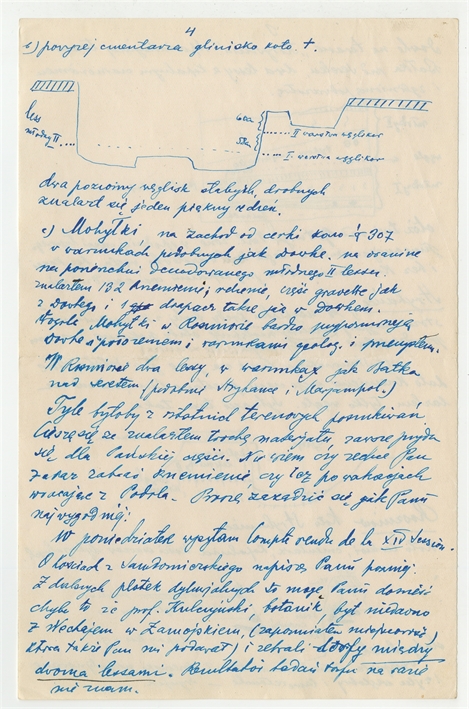 4
b) powyżej cmentarza glinisko koło +.
less
młodszy II
60 cm
55 cm
II warstwa węglików
I. warstwa węglików
dwa poziomy węglisk słabych, drobnych
znalazł się jeden piękny rdzeń.
c) Mohyłki na zachód od cerkwi koło 307
w warunkach podobnych jak Dowhe. na oraninie
na powierzchni denudowanego młodszego II lessu.
znalazłem 132 krzemienie; rdzenie, część gravette jak
z Dowhego i 1 drapacz takie jak w Dowhem.
Wogóle Mohyłki w Rosniowie bardzo przypominają
Dowhe i położeniem i warunkami geolog. i przemysłem.
W Rosniowie dwa lessy, w warunkach jak Datka
nad Seretem (podobnie Stryhańce i Marjampol.)
Tyle byłoby z ostatnich terenowych poszukiwań
Cieszę się ze znalazłem trochę materjału, zawsze przyda
się dla Pańskiej części. Nie wiem czy zechce Pan
zaraz zabrać krzemienie, czy też po wakacjach
wracając z Podola. Proszę zarządzić się jak Panu
najwygodniej.
W poniedziałek wysyłam Compte rendu de la XIV Session.
O łosiach z Sandomierskiego napiszę Panu poźniej.
Z dalszych plotek dyluwjalnych to mogę Panu donieść
chyba to że prof. Kulczyński, botanik, był niedawno
z Wechejem w Zamojskiem, (zapomniałem miejscowość)
która także Pan mi podawał) i zebrali torfy między
dwoma lessami. Rezultatów badań torfu na razie
nie znam.